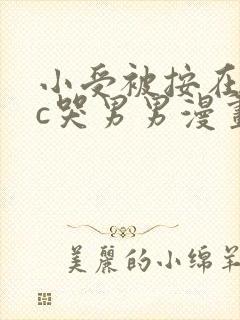 小受被按在
c哭男男漫畫
美麗的小绵羊